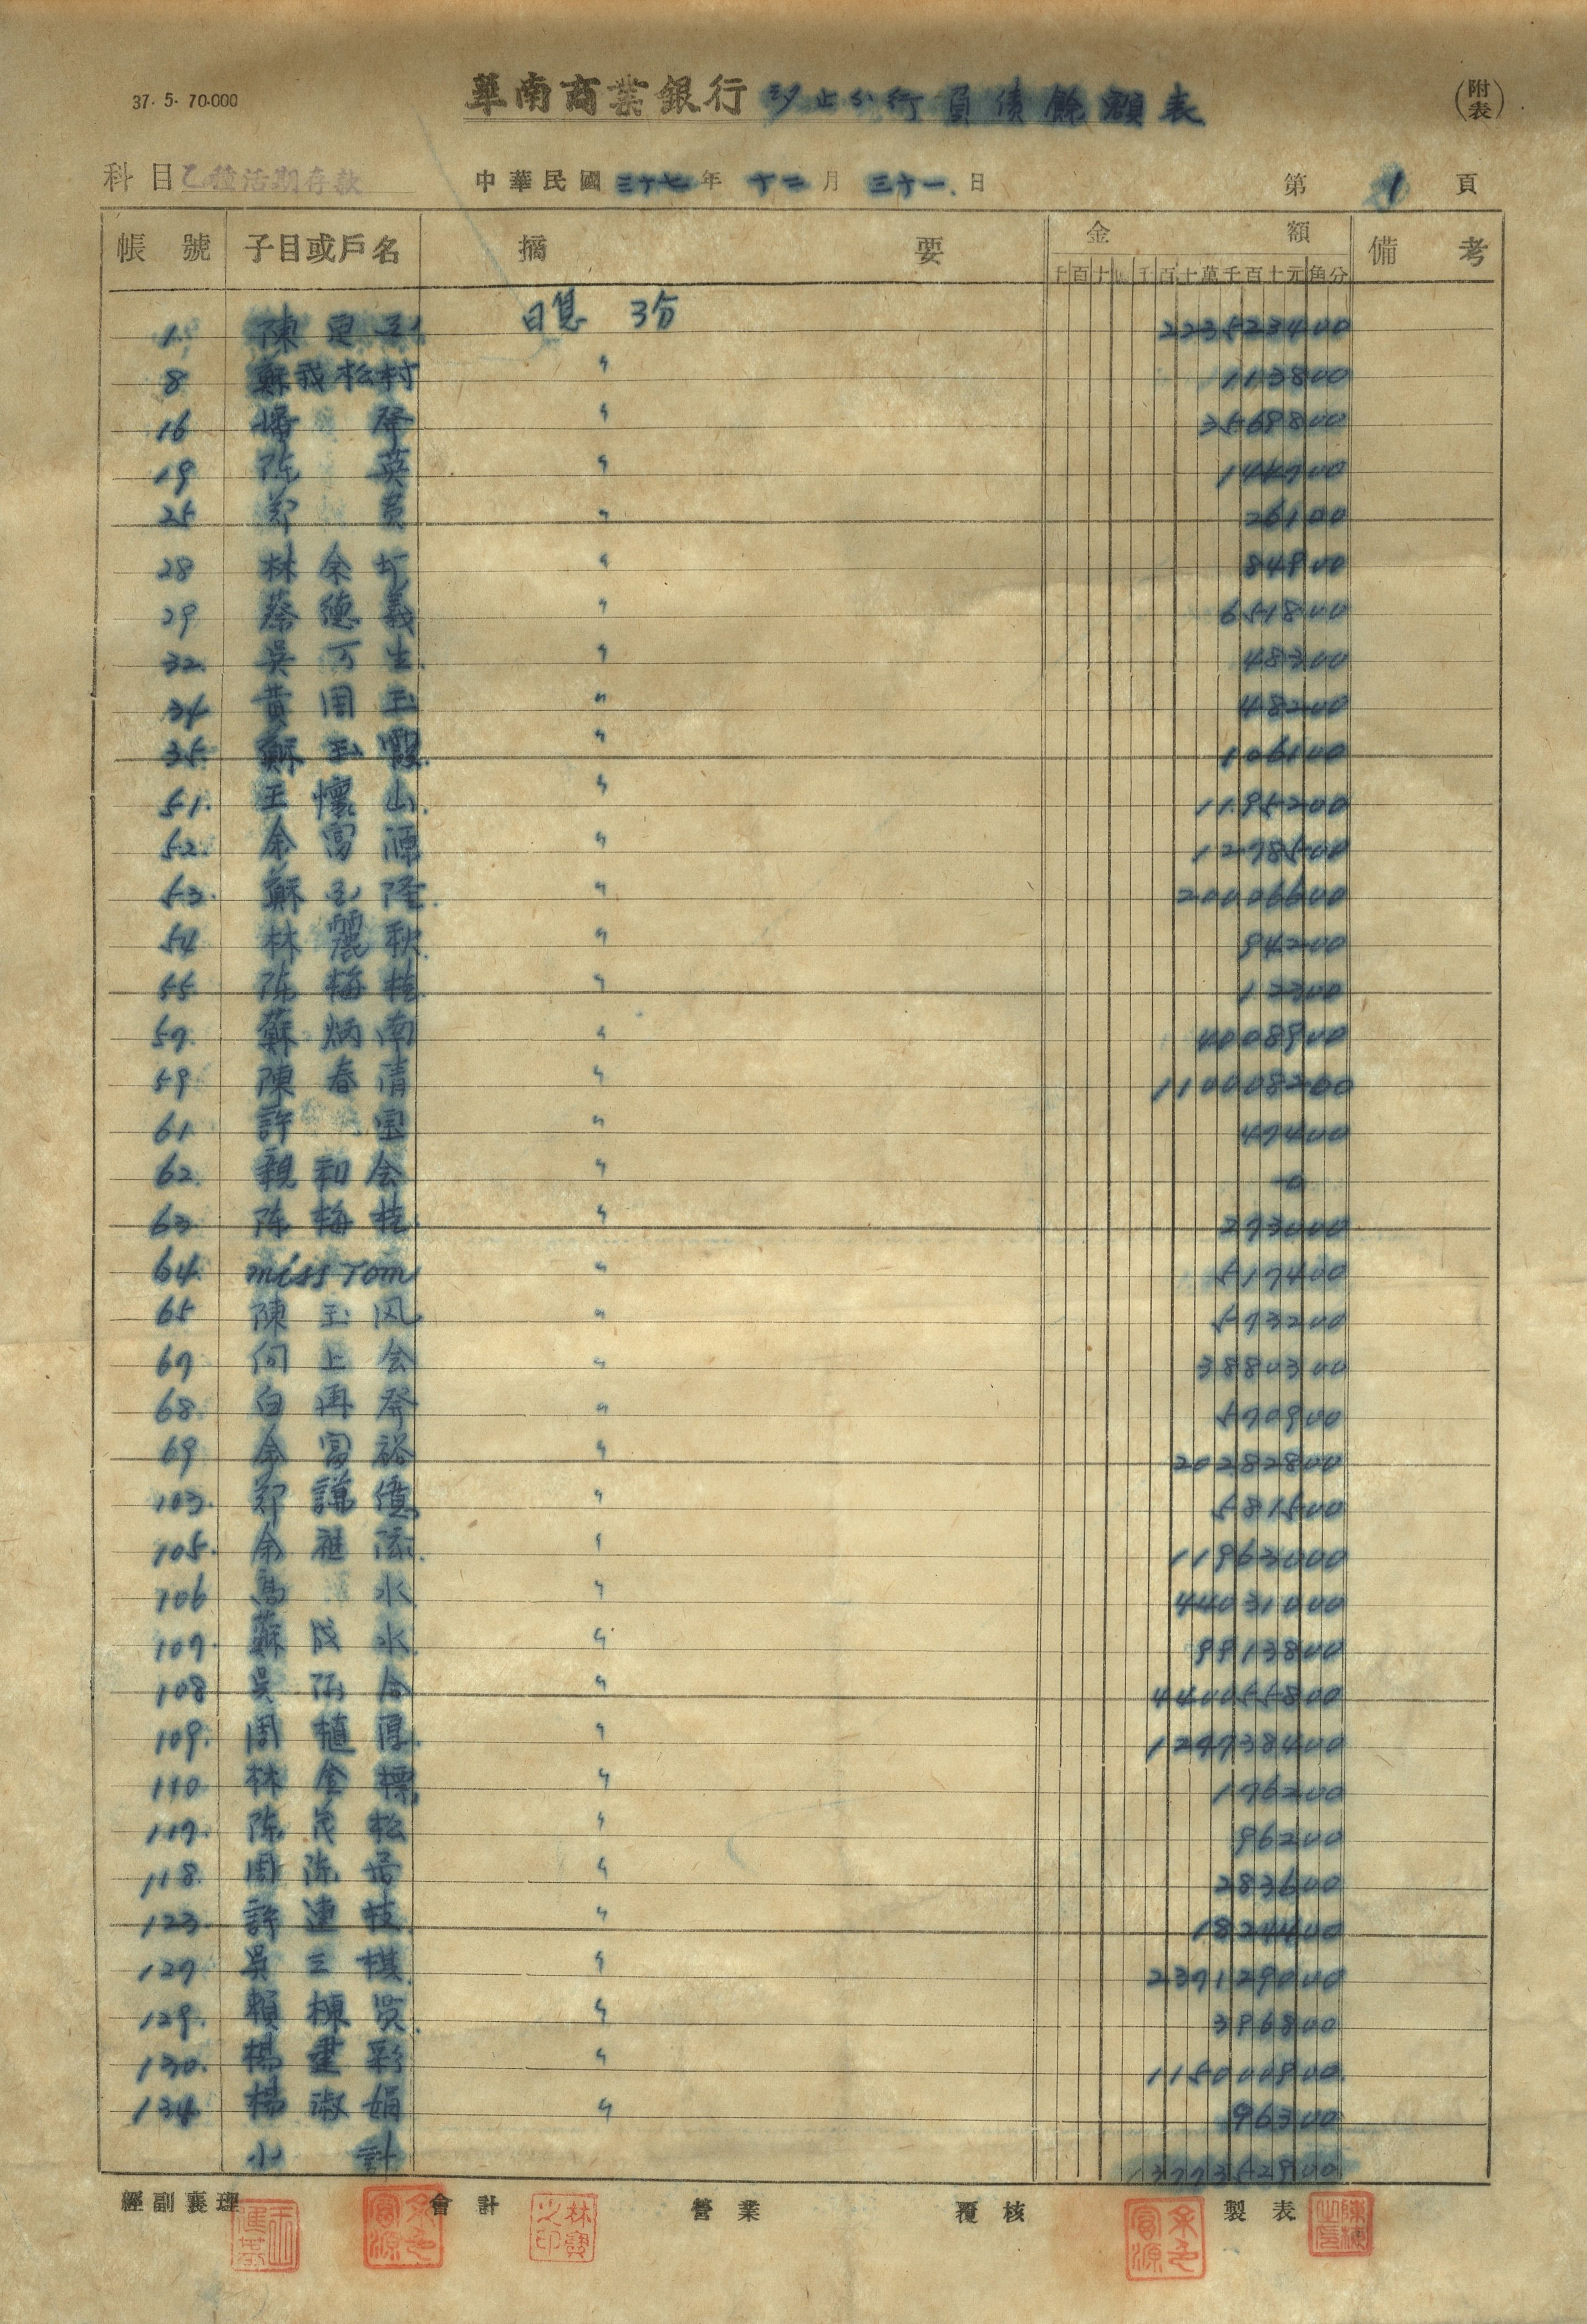 37. 5. 70.000
華南商業銀行 汐止分行負債餘額表
(附表)
科目 乙種活期存款 中華民國 三十七 年 十二 月 三十一 日 第 1 頁
帳號 子目或戶名 摘要 金額 備考
千百十億千百十萬千百十元角分
1. 陳 日息 3分 2235234 00
8 蘇我松村 〃 1138 00
16 潘 〃 35698 00
19 陈 英 〃 1447 00
25 郑 〃 261 00
28 林余 〃 849 00
29 蔡德義 〃 6518 00
32. 吳万生 〃 483 00
34 黃周玉 〃 482 00
35 蘇玉霞 〃 1061 00
51. 王懷山 〃 11952 00
52. 余富源 〃 12785 00
53. 蘇玉隆 〃 200066 00
54 林麗秋 〃 942 00
55 陈梅桂 〃 122 00
57. 蘇炳南 〃 40089 00
59 陳春清 〃 1100082 00
61 許宝 〃 474 00
62. 親和会 〃 0
63 陈梅桂 〃 2730 00
64. miss Tom 〃 5174 00
65 陳玉凤 〃 5732 00
67 向上会 〃 38803 00
68. 白再發 〃 5709 00
69 余富裕 〃 202828 00
103. 郑謙億 〃 5815 00
105. 余 添 〃 119630 00
106 高水 〃 440310 00
107. 蘇成水 〃 99138 00
108 吳 〃 4400558 00
109. 周植厚 〃 1247384 00
110 林金標 〃 1762 00
117. 陈茂松 〃 962 00
118. 周陈 〃 2836 00
123. 許連枝 〃 18244 00
127 吳三棋 〃 2371290 00
129. 賴棟 〃 3968 00
130. 楊畫彩 〃 1150009 00
134 楊淑娟 〃 963 00
小計 13773529 00
經副襄理 會計 營業 覆核 製表
余富源 林寶之印 余富源